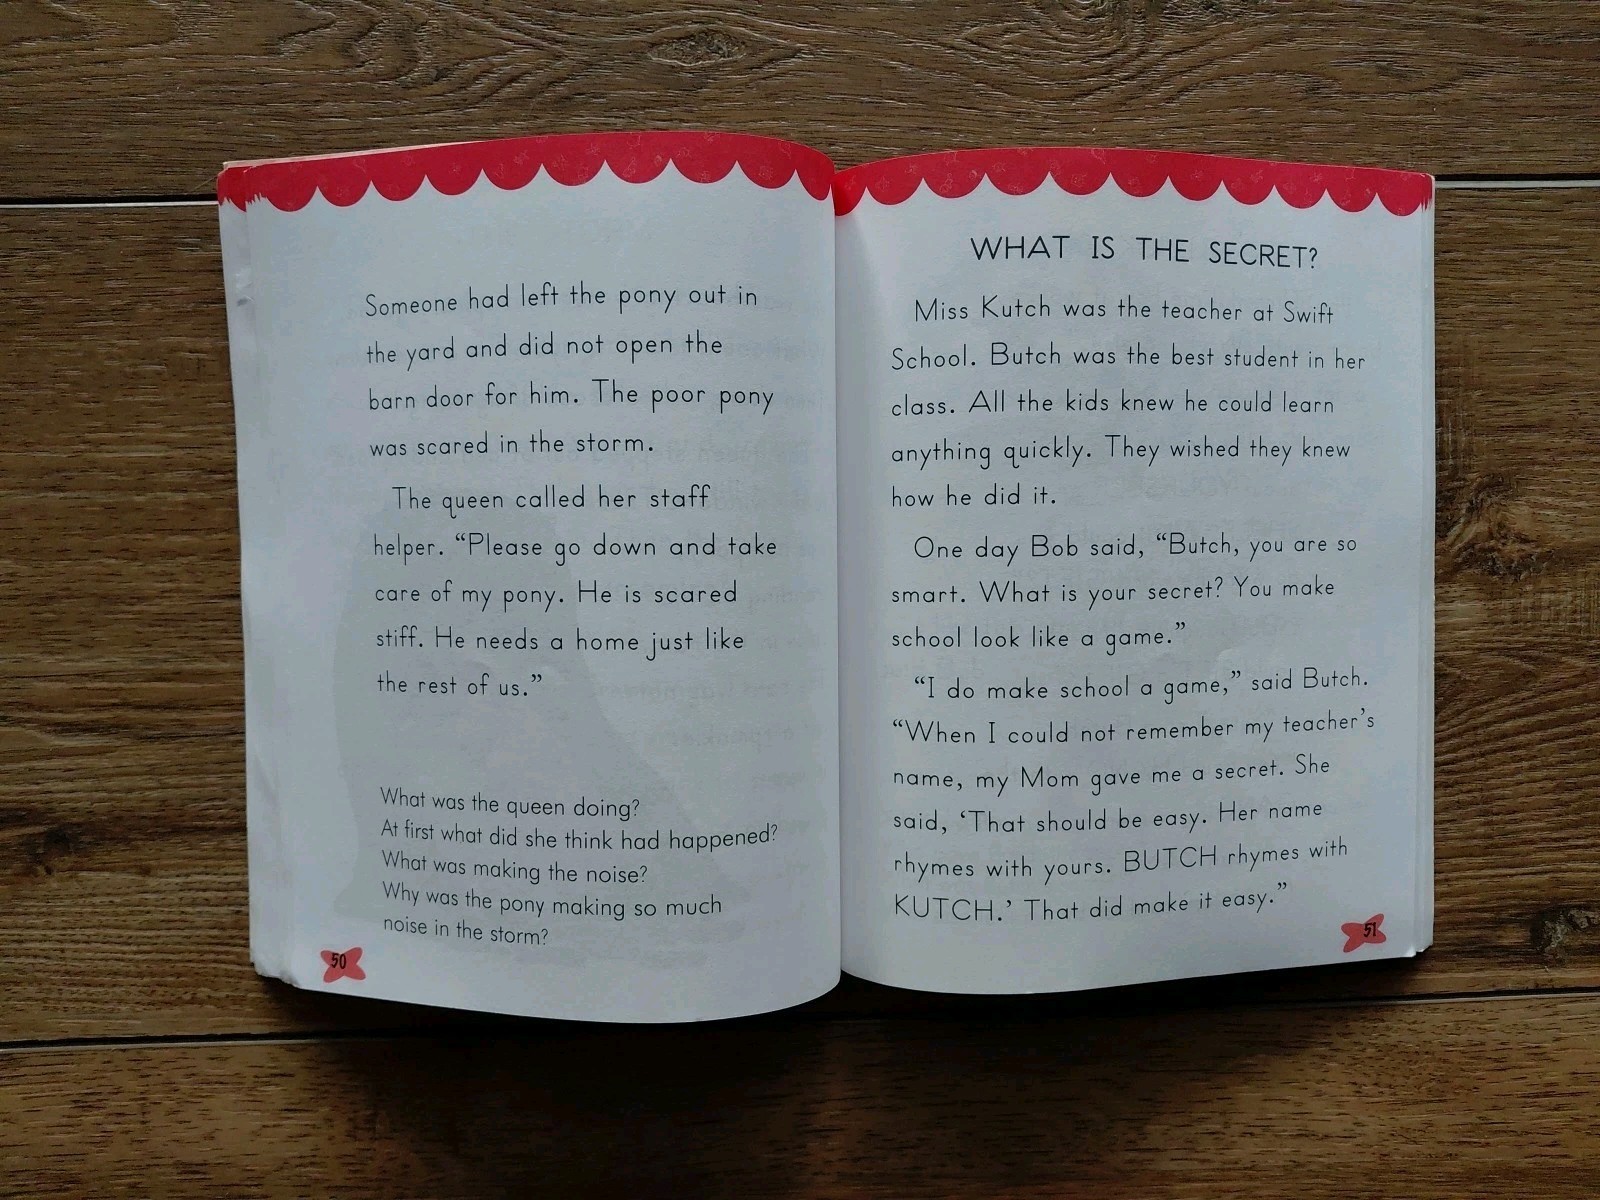 Someone had left the pony out in
the yard and did not open the
barn door for him. The poor pony
was scared in the storm.
The queen called her staff
helper. “Please go down and take
care of my pony. He is scared
stiff. He needs a home just like
the rest of us.”
What was the queen doing?
At first what did she think had happened?
What was making the noise?
Why was the pony making so much
noise in the storm?
50
WHAT IS THE SECRET?
Miss Kutch was the teacher at Swift
School. Butch was the best student in her
class. All the kids knew he could learn
anything quickly. They wished they knew
how he did it.
One day Bob said, “Butch, you are so
smart. What is your secret? You make
school look like a game.”
“I do make school a game,” said Butch.
“When I could not remember my teacher’s
name, my Mom gave me a secret. She
said, ‘That should be easy. Her name
rhymes with yours. BUTCH rhymes with
KUTCH.’ That did make it easy.”
51